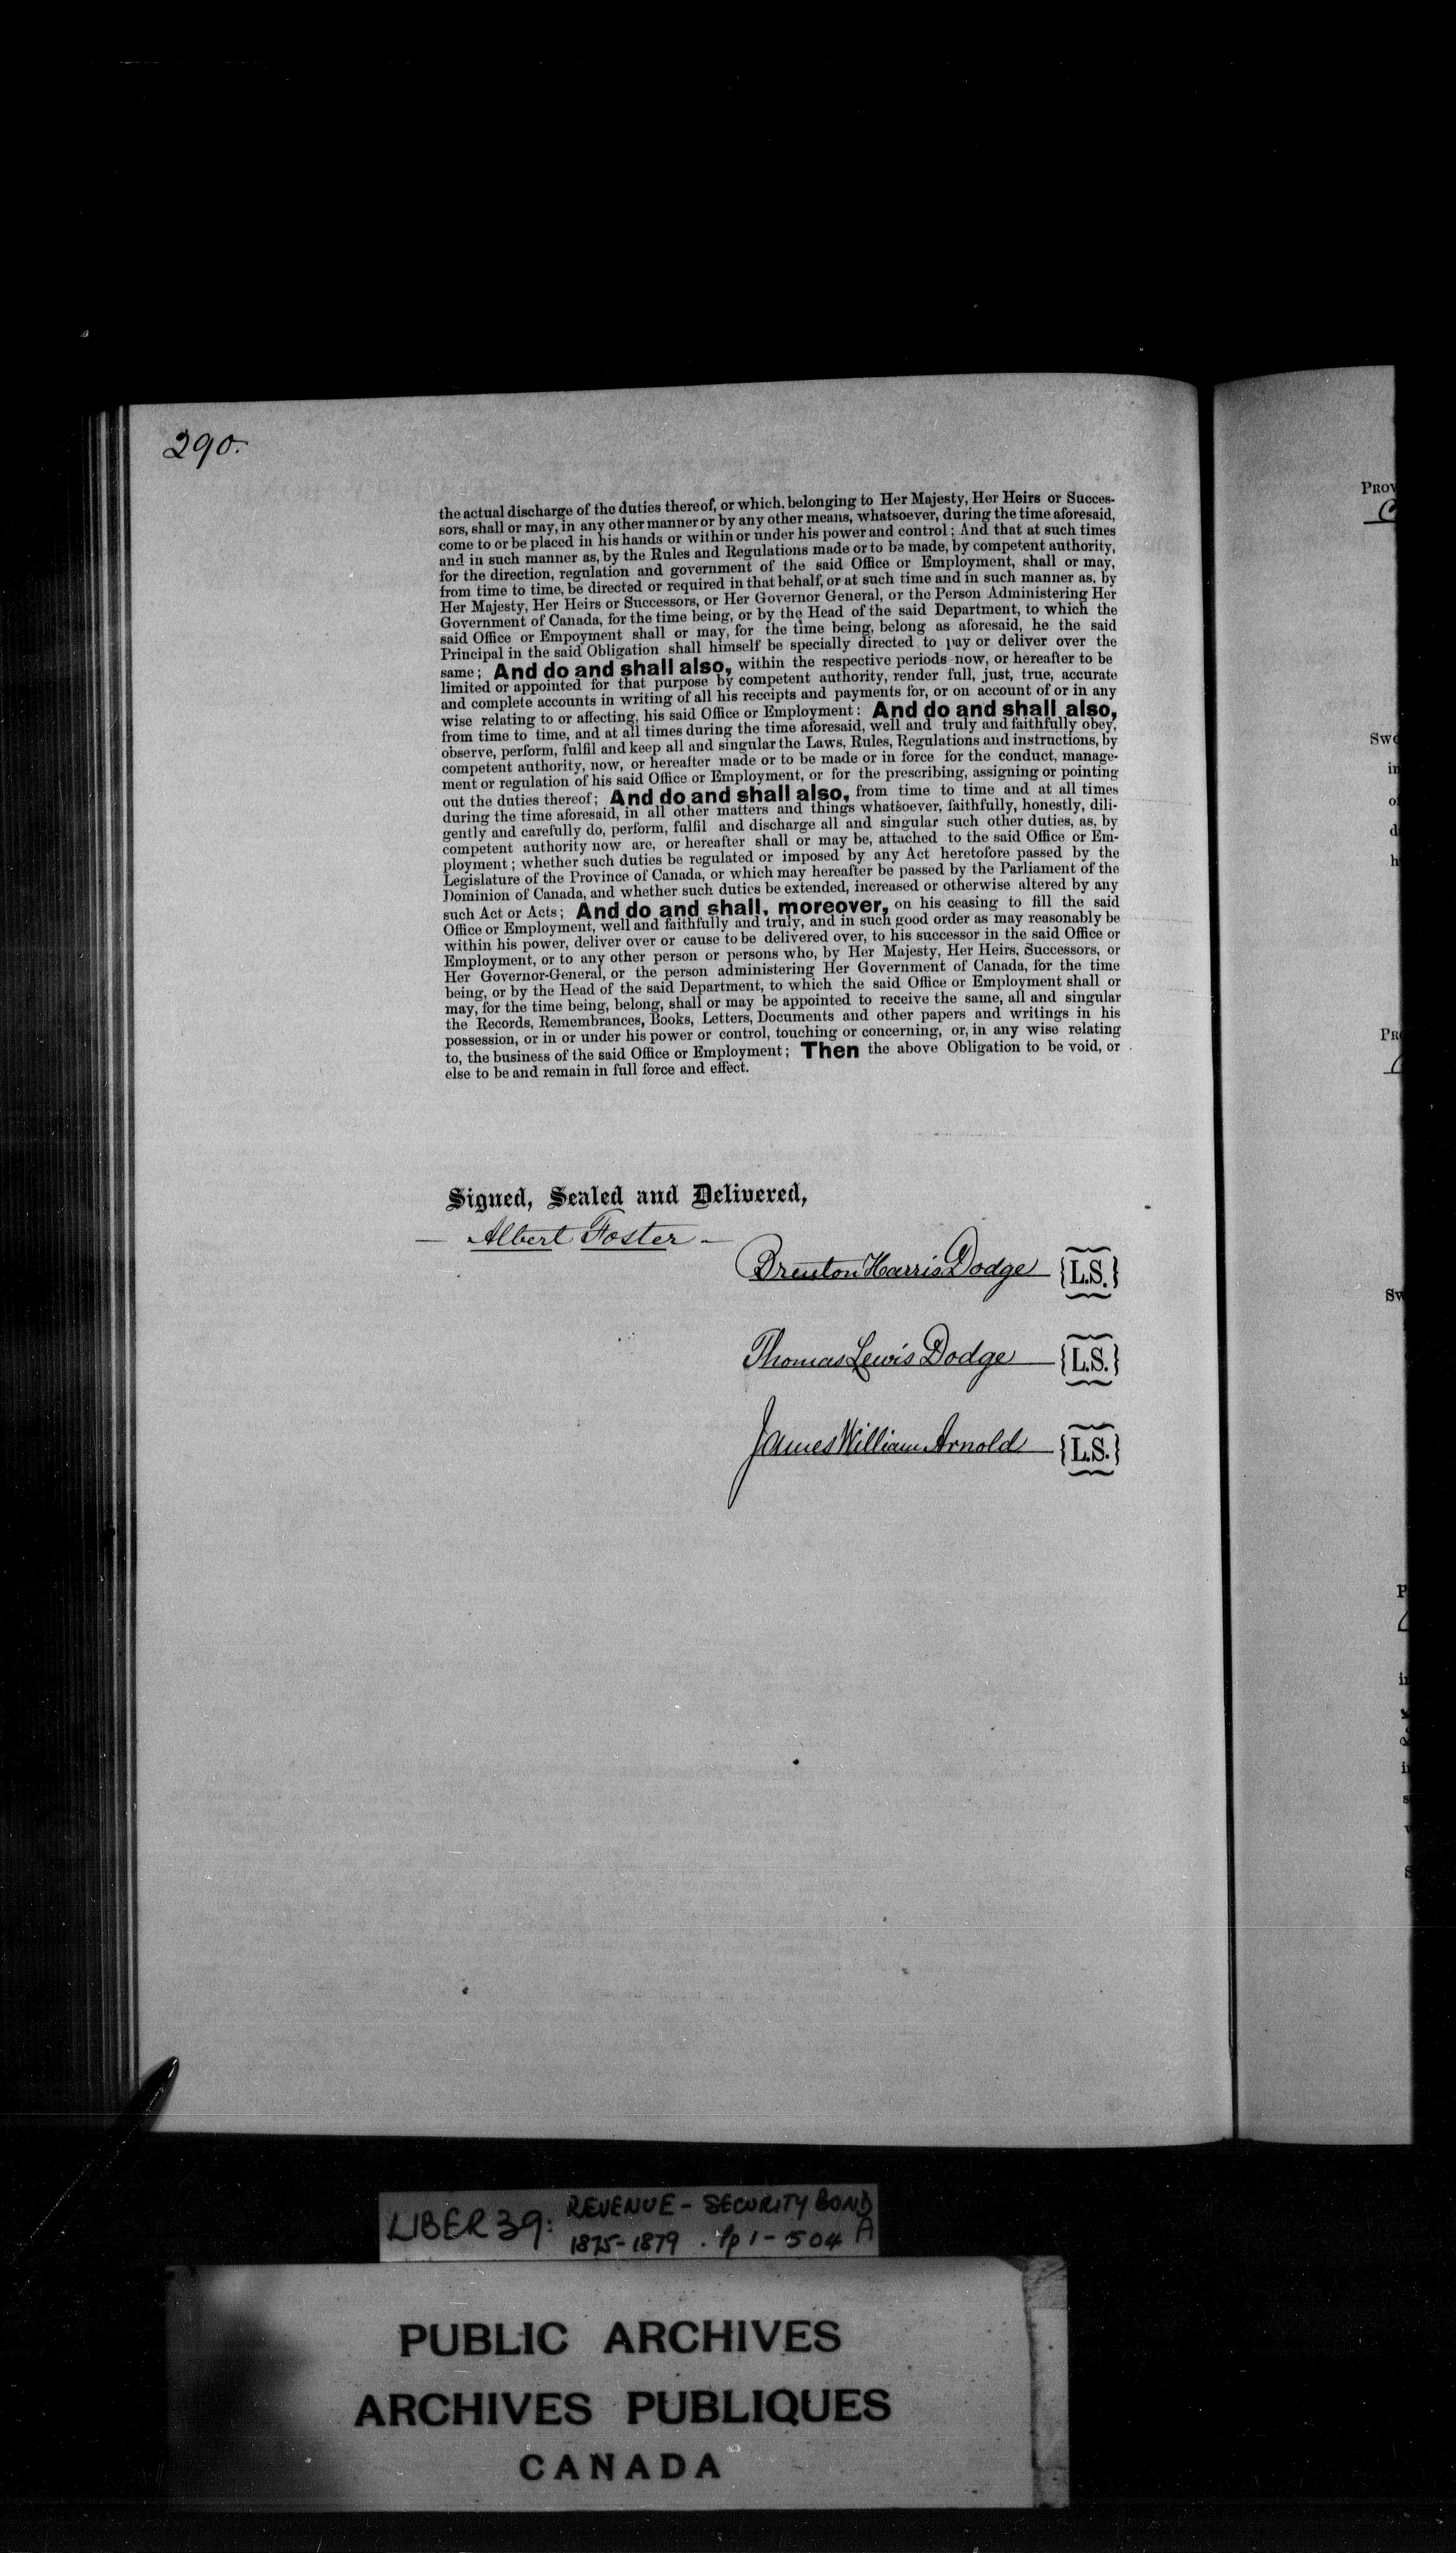 290.
the actual discharge of the duties thereof, or which, belonging to Her Majesty, Her Heirs or Succes-
sors, shall or may, in any other manner or by any other means, whatsoever, during the time aforesaid,
come to or be placed in his hands or within or under his power and control; And that at such times
and in such manner as, by the Rules and Regulations made or to be made, by competent authority,
for the direction, regulation and government of the said Office or Employment, shall or may,
from time to time, be directed or required in that behalf, or at such time and in such manner as, by
Her Majesty, Her Heirs or Successors, or Her Governor General, or the Person Administering Her
Government of Canada, for the time being, or by the Head of the said Department, to which the
said Office or Empoyment shall or may, for the time being, belong as aforesaid, he the said
Principal in the said Obligation shall himself be specially directed to pay or deliver over the
same; And do and shall also, within the respective periods now, or hereafter to be
limited or appointed for that purpose by competent authority, render full, just, true, accurate
and complete accounts in writing of all his receipts and payments for, or on account of or in any
wise relating to or affecting, his said Office or Employment: And do and shall also,
from time to time, and at all times during the time aforesaid, well and truly and faithfully obey,
observe, perform, fulfil and keep all and singular the Laws, Rules, Regulations and instructions, by
competent authority, now, or hereafter made or to be made or in force for the conduct, manage-
ment or regulation of his said Office or Employment, or for the prescribing, assigning or pointing
out the duties thereof; And do and shall also, from time to time and at all times
during the time aforesaid, in all other matters and things whatsoever, faithfully, honestly, dili-
gently and carefully do, perform, fulfil and discharge all and singular such other duties, as, by
competent authority now are, or hereafter shall or may be, attached to the said Office or Em-
ployment; whether such duties be regulated or imposed by any Act heretofore passed by the
Legislature of the Province of Canada, or which may hereafter be passed by the Parliament of the
Dominion of Canada, and whether such duties be extended, increased or otherwise altered by any
such Act or Acts; And do and shall, moreover, on his ceasing to fill the said
Office or Employment, well and faithfully and truly, and in such good order as may reasonably be
within his power, deliver over or cause to be delivered over, to his successor in the said Office or
Employment, or to any other person or persons who, by Her Majesty, Her Heirs, Successors, or
Her Governor-General, or the person administering Her Government of Canada, for the time
being, or by the Head of the said Department, to which the said Office or Employment shall or
may, for the time being, belong, shall or may be appointed to receive the same, all and singular
the Records, Remembrances, Books, Letters, Documents and other papers and writings in his
possession, or in or under his power or control, touching or concerning, or, in any wise relating
to, the business of the said Office or Employment; Then the above Obligation to be void, or
else to be and remain in full force and effect.
Signed, Sealed and Delivered,
— Albert Foster —
Brenton Harris Dodge {L.S.}
Thomas Lewis Dodge {L.S.}
James William Arnold {L.S.}
LIBER 39: REVENUE - SECURITY BOND
1875-1879 . Pp 1 - 504 A
PUBLIC ARCHIVES
ARCHIVES PUBLIQUES
CANADA